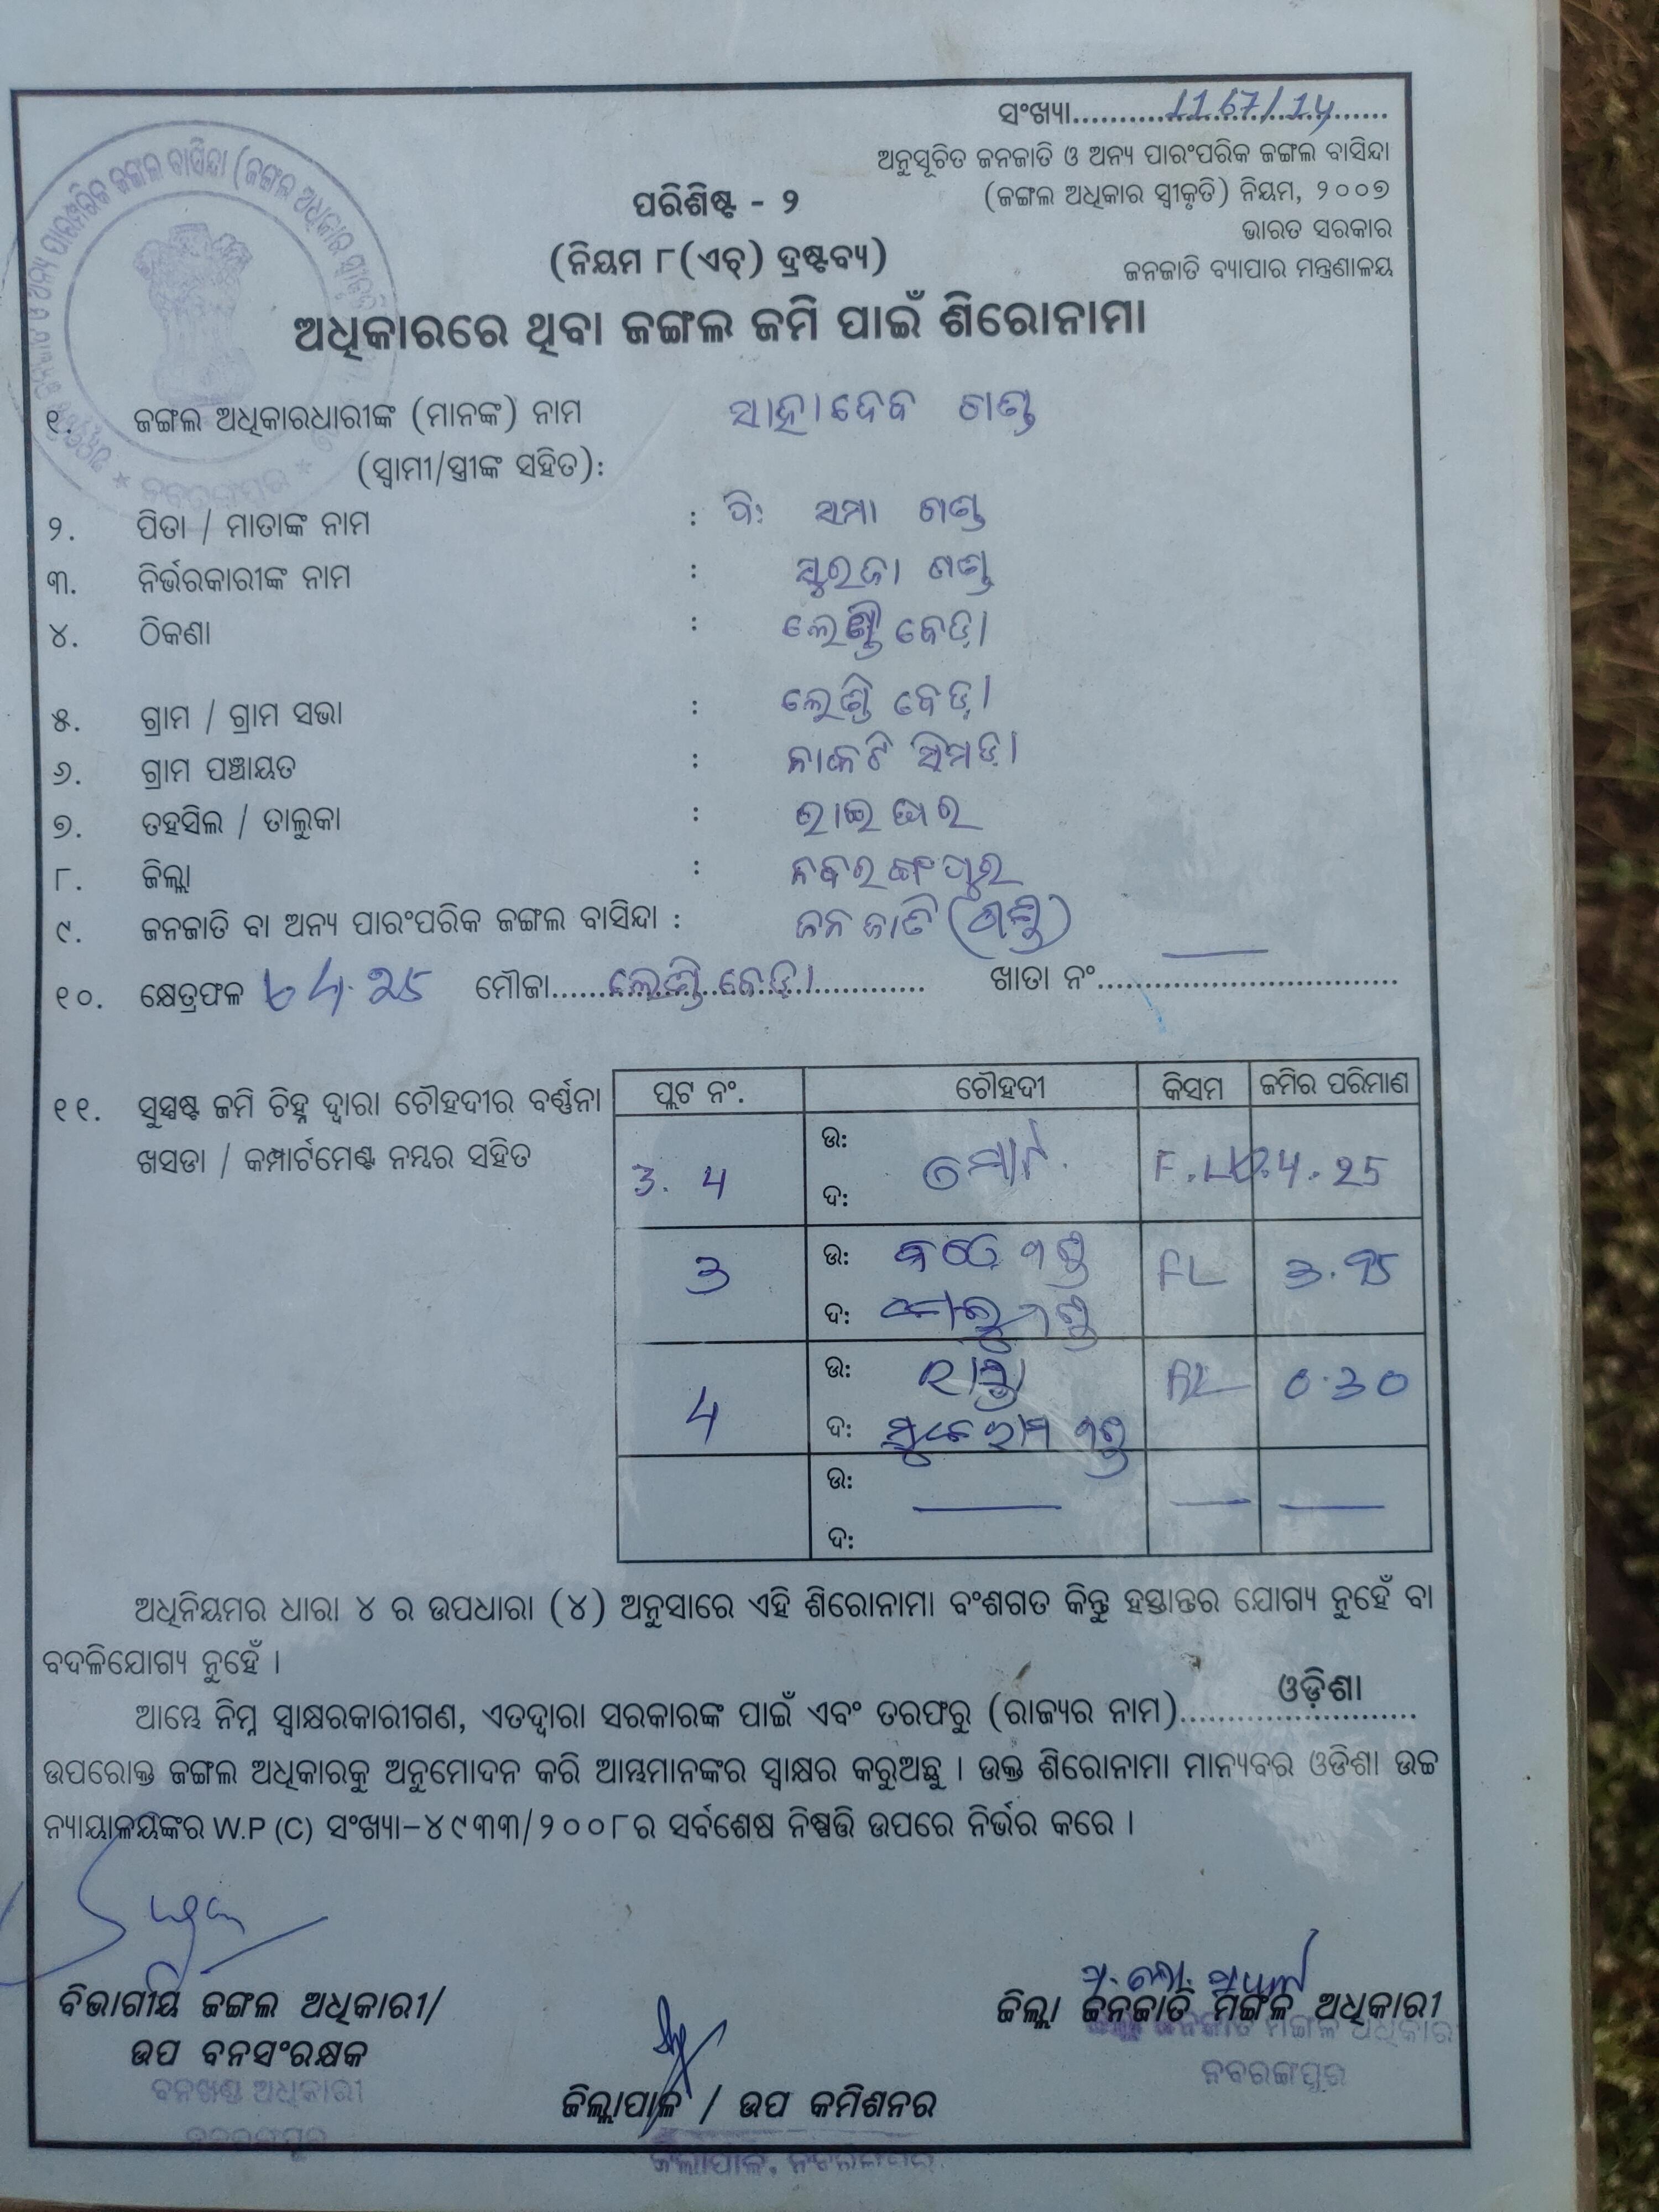 ସଂଖ୍ୟା...........1167/14......
ଅନୁସୂଚିତ ଜନଜାତି ଓ ଅନ୍ୟ ପାରଂପରିକ ଜଙ୍ଗଲ ବାସିନ୍ଦା
(ଜଙ୍ଗଲ ଅଧିକାର ସ୍ୱୀକୃତି) ନିୟମ, ୨୦୦୭
ଭାରତ ସରକାର
ଜନଜାତି ବ୍ୟାପାର ମନ୍ତ୍ରଣାଳୟ
ପରିଶିଷ୍ଟ - ୨
(ନିୟମ ୮(ଏଚ୍) ଦ୍ରଷ୍ଟବ୍ୟ)
ଅଧିକାରରେ ଥିବା ଜଙ୍ଗଲ ଜମି ପାଇଁ ଶିରୋନାମା
୧. ଜଙ୍ଗଲ ଅଧିକାରଧାରୀଙ୍କ (ମାନଙ୍କ) ନାମ ସାହାଦେବ ଗଣ୍ଡ
(ସ୍ୱାମୀ/ସ୍ତ୍ରୀଙ୍କ ସହିତ):
୨. ପିତା / ମାତାଙ୍କ ନାମ : ପି: ସମା ଗଣ୍ଡ
୩. ନିର୍ଭରକାରୀଙ୍କ ନାମ : ସୁରଜା ଗଣ୍ଡ
୪. ଠିକଣା : ଲେଣ୍ଡି ବେଡ଼ା
୫. ଗ୍ରାମ / ଗ୍ରାମ ସଭା : ଲେଣ୍ଡି ବେଡ଼ା
୬. ଗ୍ରାମ ପଞ୍ଚାୟତ : ନାକଟି ସିମଡ଼ା
୭. ତହସିଲ / ତାଲୁକା : ରାଇଘର
୮. ଜିଲ୍ଲା : ନବରଙ୍ଗପୁର
୯. ଜନଜାତି ବା ଅନ୍ୟ ପାରଂପରିକ ଜଙ୍ଗଲ ବାସିନ୍ଦା : ଜନଜାତି (ଗଣ୍ଡ)
୧୦. କ୍ଷେତ୍ରଫଳ 4.25 ମୌଜା......ଲେଣ୍ଡି ବେଡ଼ା............ ଖାତା ନଂ................................
୧୧. ସୁସ୍ପଷ୍ଟ ଜମି ଚିହ୍ନ ଦ୍ୱାରା ଚୌହଦୀର ବର୍ଣ୍ଣନା
ଖସଡା / କମ୍ପାର୍ଟମେଣ୍ଟ ନମ୍ବର ସହିତ
ପ୍ଲଟ ନଂ. ଚୌହଦୀ କିସମ ଜମିର ପରିମାଣ
ଉ:
3. 4 4.25
ଦ:
ଉ: ଗଣ୍ଡ
3 FL 3.95
ଦ: ଗଣ୍ଡ
ଉ: ରାସ୍ତା
4 0.30
ଦ: ଗଣ୍ଡ
ଉ:
ଦ:
ଅଧିନିୟମର ଧାରା ୪ ର ଉପଧାରା (୪) ଅନୁସାରେ ଏହି ଶିରୋନାମା ବଂଶଗତ କିନ୍ତୁ ହସ୍ତାନ୍ତର ଯୋଗ୍ୟ ନୁହେଁ ବା
ବଦଳିଯୋଗ୍ୟ ନୁହେଁ ।
ଆମ୍ଭେ ନିମ୍ନ ସ୍ୱାକ୍ଷରକାରୀଗଣ, ଏତଦ୍ୱାରା ସରକାରଙ୍କ ପାଇଁ ଏବଂ ତରଫରୁ (ରାଜ୍ୟର ନାମ).......ଓଡ଼ିଶା.......
ଉପରୋକ୍ତ ଜଙ୍ଗଲ ଅଧିକାରକୁ ଅନୁମୋଦନ କରି ଆମ୍ଭମାନଙ୍କର ସ୍ୱାକ୍ଷର କରୁଅଛୁ । ଉକ୍ତ ଶିରୋନାମା ମାନ୍ୟବର ଓଡିଶା ଉଚ୍ଚ
ନ୍ୟାୟାଳୟଙ୍କର W.P (C) ସଂଖ୍ୟା-୪୯୩୩/୨୦୦୮ର ସର୍ବଶେଷ ନିଷ୍ପତ୍ତି ଉପରେ ନିର୍ଭର କରେ ।
ବିଭାଗୀୟ ଜଙ୍ଗଲ ଅଧିକାରୀ/
ଉପ ବନସଂରକ୍ଷକ
ବନଖଣ୍ଡ ଅଧିକାରୀ
ନବରଙ୍ଗପୁର
ଜିଲ୍ଲାପାଳ / ଉପ କମିଶନର
ଜିଲ୍ଲାପାଳ, ନବରଙ୍ଗପୁର
ଜିଲ୍ଲା ଜନଜାତି ମଙ୍ଗଳ ଅଧିକାରୀ
ଜିଲ୍ଲା ଜନଜାତି ମଙ୍ଗଳ ଅଧିକାରୀ
ନବରଙ୍ଗପୁର